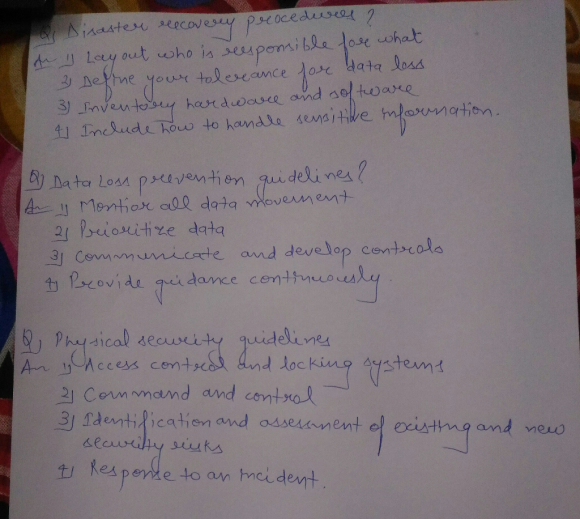 Q) Disaster recovery procedures?
An 1) Lay out who is responsible for what
2) Define your tolerance for data loss
3) Inventory hardware and software
4) Include how to handle sensitive information.
Q) Data Loss prevention guidelines?
An 1) Montior all data movement
2) Prioritize data
3) Communicate and develop controls
4) Provide guidance continuously.
Q) Physical security guidelines
An 1) Access control and locking systems
2) Command and control
3) Identification and assessment of existing and new
security risks
4) Response to an incident.